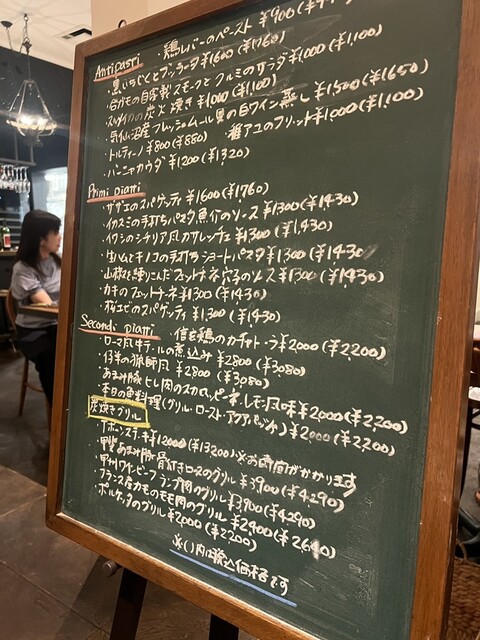 Antipasti ・鶏レバーのペースト ¥900(¥990)
・黒いちじくとブッラータ ¥1600(¥1760)
・合ガモの自家製スモークとフルミのサラダ ¥1000(¥1,100)
・スルメイカの炭火焼き ¥1000(¥1,100)
・気仙沼産フレッシュムール貝の白ワイン蒸し ¥1500(¥1650)
・トルティーノ ¥800(¥880) ・稚アユのフリット ¥1000(¥1,100)
・バーニャカウダ ¥1,200(¥1320)
Primi piatti
・サザエのスパゲッティ ¥1600(¥1,760)
・イカスミの手打ちパスタ魚介のソース ¥1300(¥1430)
・イワシのシチリア風カサレッチェ ¥1300(¥1,430)
・生ハムとキノコの手打ちショートパスタ ¥1300(¥1430)
・山椒を練りこんだフェットチーネ穴子のソース ¥1300(¥1430)
・カキのフェットチーネ ¥1300(¥1430)
・桜エビのスパゲッティ ¥1,300(¥1430)
Secondi piatti ・信玄鶏のカチャトーラ ¥2000(¥2200)
・ローマ風牛テールの煮込み ¥2800(¥3080)
・仔羊の猟師風 ¥2800(¥3,080)
・あまみ豚ヒレ肉のスカロッピーネレモン風味 ¥2000(¥2,200)
・本日の魚料理(グリル・ロースト・アクアパッツァ) ¥2000(¥2200)
炭焼きグリル
・Tボーンステーキ ¥12000(¥13200)※お時間がかかります
・甲州あまみ豚骨付きロースのグリル ¥3900(¥4290)
・甲州ワインビーフランプ肉のグリル ¥3900(¥4290)
・フランス産カモのモモ肉のグリル ¥2400(¥2640)
・ポルケッタのグリル ¥2000(¥2200)
※( )内は税込価格です